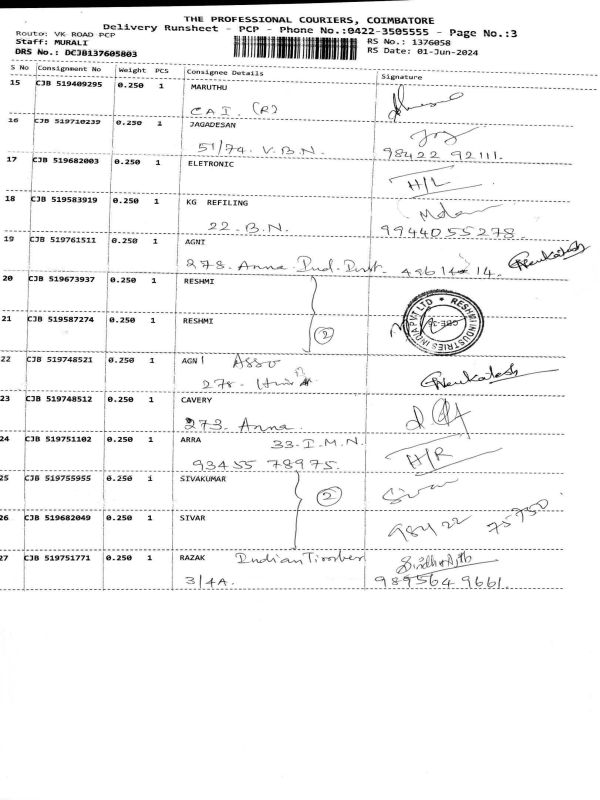 THE PROFESSIONAL COURIERS, COIMBATORE
Delivery Runsheet - PCP - Phone No.:0422-3505555 - Page No.:3
Routo: VK ROAD PCP
Staff: MURALI RS No.: 1376058
DRS No.: DCJB137605803 RS Date: 01-Jun-2024
S No Consignment No Weight PCS Consignee Details Signature
15 CJB 519409295 0.250 1 MARUTHU
CAI. (R)
16 CJB 519710239 0.250 1 JAGADESAN
51/74. V.B.N. 98422 92111.
17 CJB 519682003 0.250 1 ELETRONIC
H/L
18 CJB 519583919 0.250 1 KG REFILING
22. B.N. 9944055278.
19 CJB 519761511 0.250 1 AGNI
278. Anna Ind. Venkatesh
20 CJB 519673937 0.250 1 RESHMI
RESHMI INDUSTRIES INDIA PVT LTD
21 CJB 519587274 0.250 1 RESHMI
2
22 CJB 519748521 0.250 1 AGNI Asso
278. Venkatesh
23 CJB 519748512 0.250 1 CAVERY
273. Anna.
24 CJB 519751102 0.250 1 ARRA 33. I.M.N.
93455 78975. H/R
25 CJB 519755955 0.250 1 SIVAKUMAR
2 Sivan
26 CJB 519682049 0.250 1 SIVAR 98422 75750.
27 CJB 519751771 0.250 1 RAZAK Indian Timber
3/4A. 9895649661.